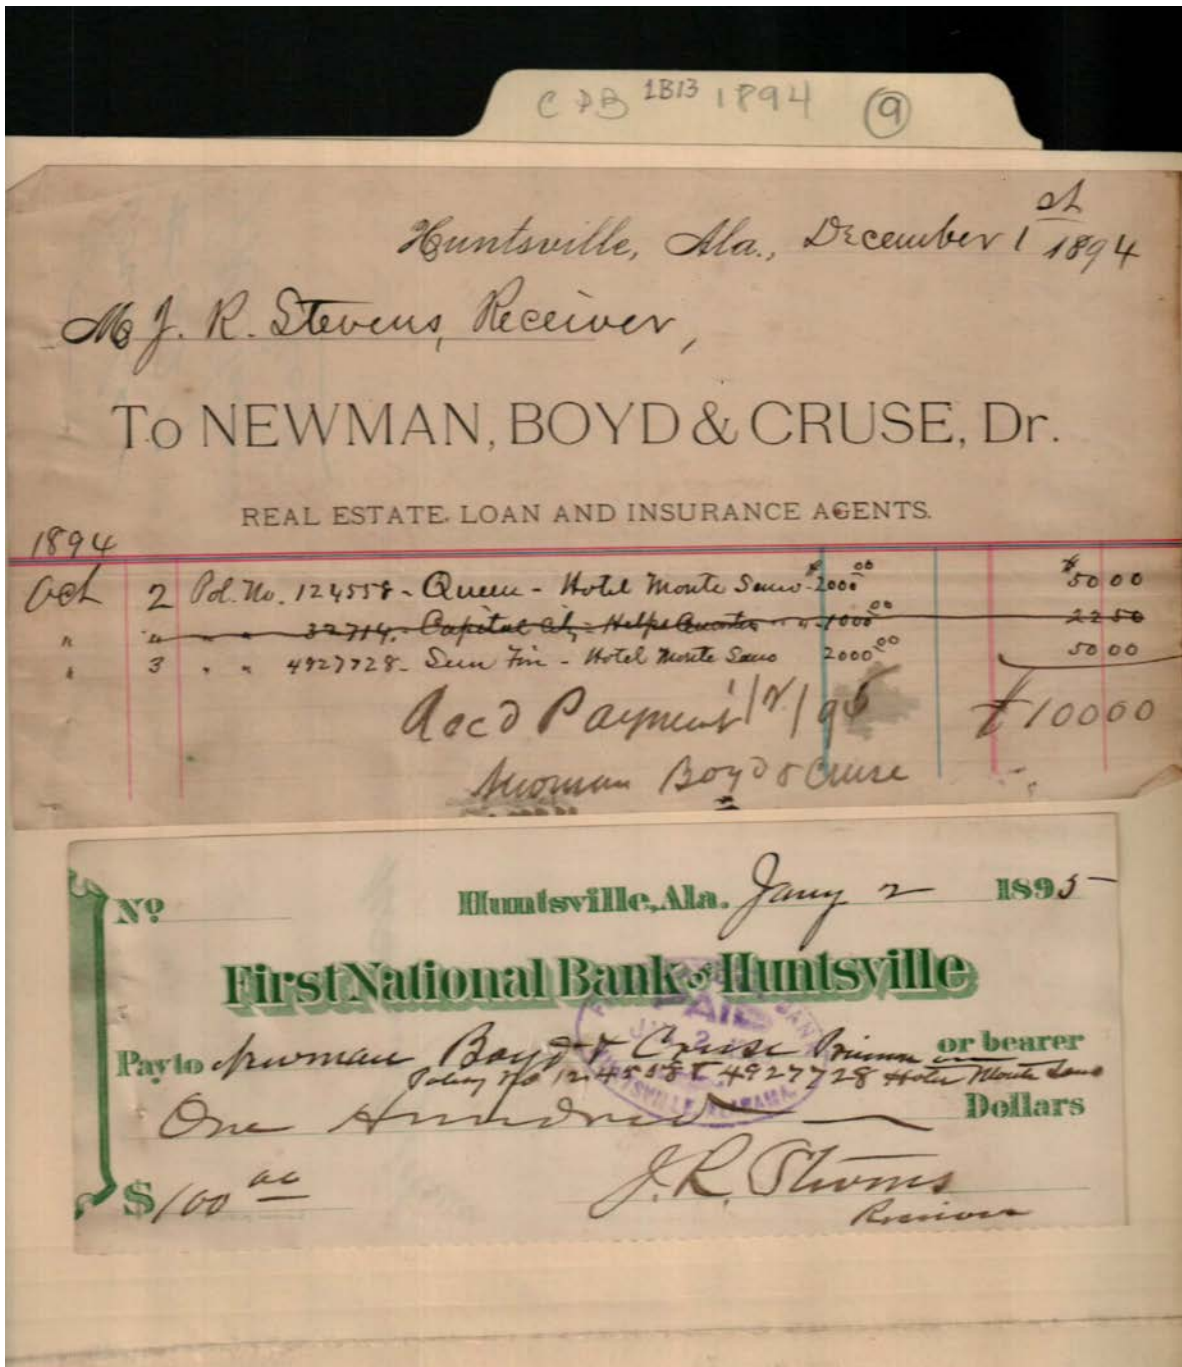 CDB 1B13 1894 9
Huntsville, Ala., December 1st 1894
M J. R. Stevens, Receiver,
To NEWMAN, BOYD & CRUSE, Dr.
REAL ESTATE, LOAN AND INSURANCE AGENTS.
1894
Oct 2 Pol. No. 124558 - Queen - Hotel Monte Sano $2000 00 $50 00
" " " " 32714 - Capital City - Helps Quarters " " 1000 00 22 50
" 3 " " 4927728 - Sun Fin - Hotel Monte Sano 2000 00 50 00
Recd Payment 1/2/95 $100 00
Newman Boyd & Cruse
No Huntsville, Ala. Jany 2 1895
First National Bank of Huntsville
PAID
Pay to Newman Boyd & Cruse Primum on or bearer
Policy No 124558 & 4927728 Hotel Monte Sano
One Hundred Dollars
$100 00 J. R. Stevens
Receiver